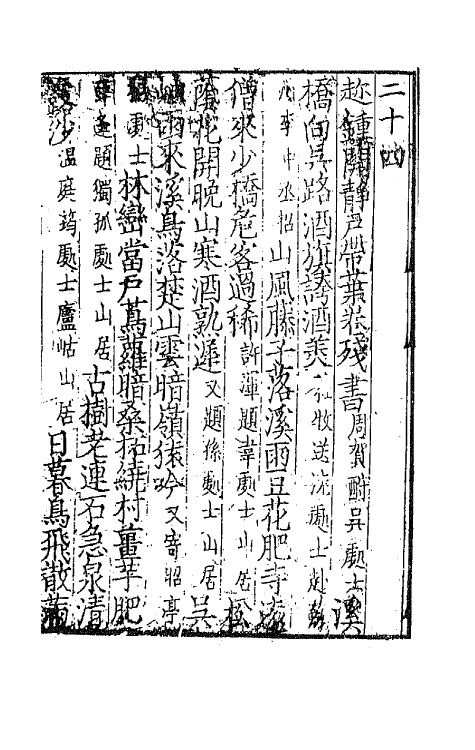 二十四
趂鍾開靜戶帶葉卷殘書周賀酬吳處士溪
橋向吳路酒旗誇酒美杜牧送沈處士赴蘇
州李中丞招山風藤子落溪雨豆花肥寺遠
僧來少橋危客過稀許渾題韋處士山居松
蔭花開晚山寒酒熟遲又題孫處士山居吳
岫雨來溪鳥落楚山雲暗嶺猿吟又寄昭亭
處士林巒當戶蔦蘿暗桑柘繞村薑芋肥
韋逢題獨孤處士山居古樹老連石急泉清
露沙温庭筠處士廬岵山居日暮鳥飛散